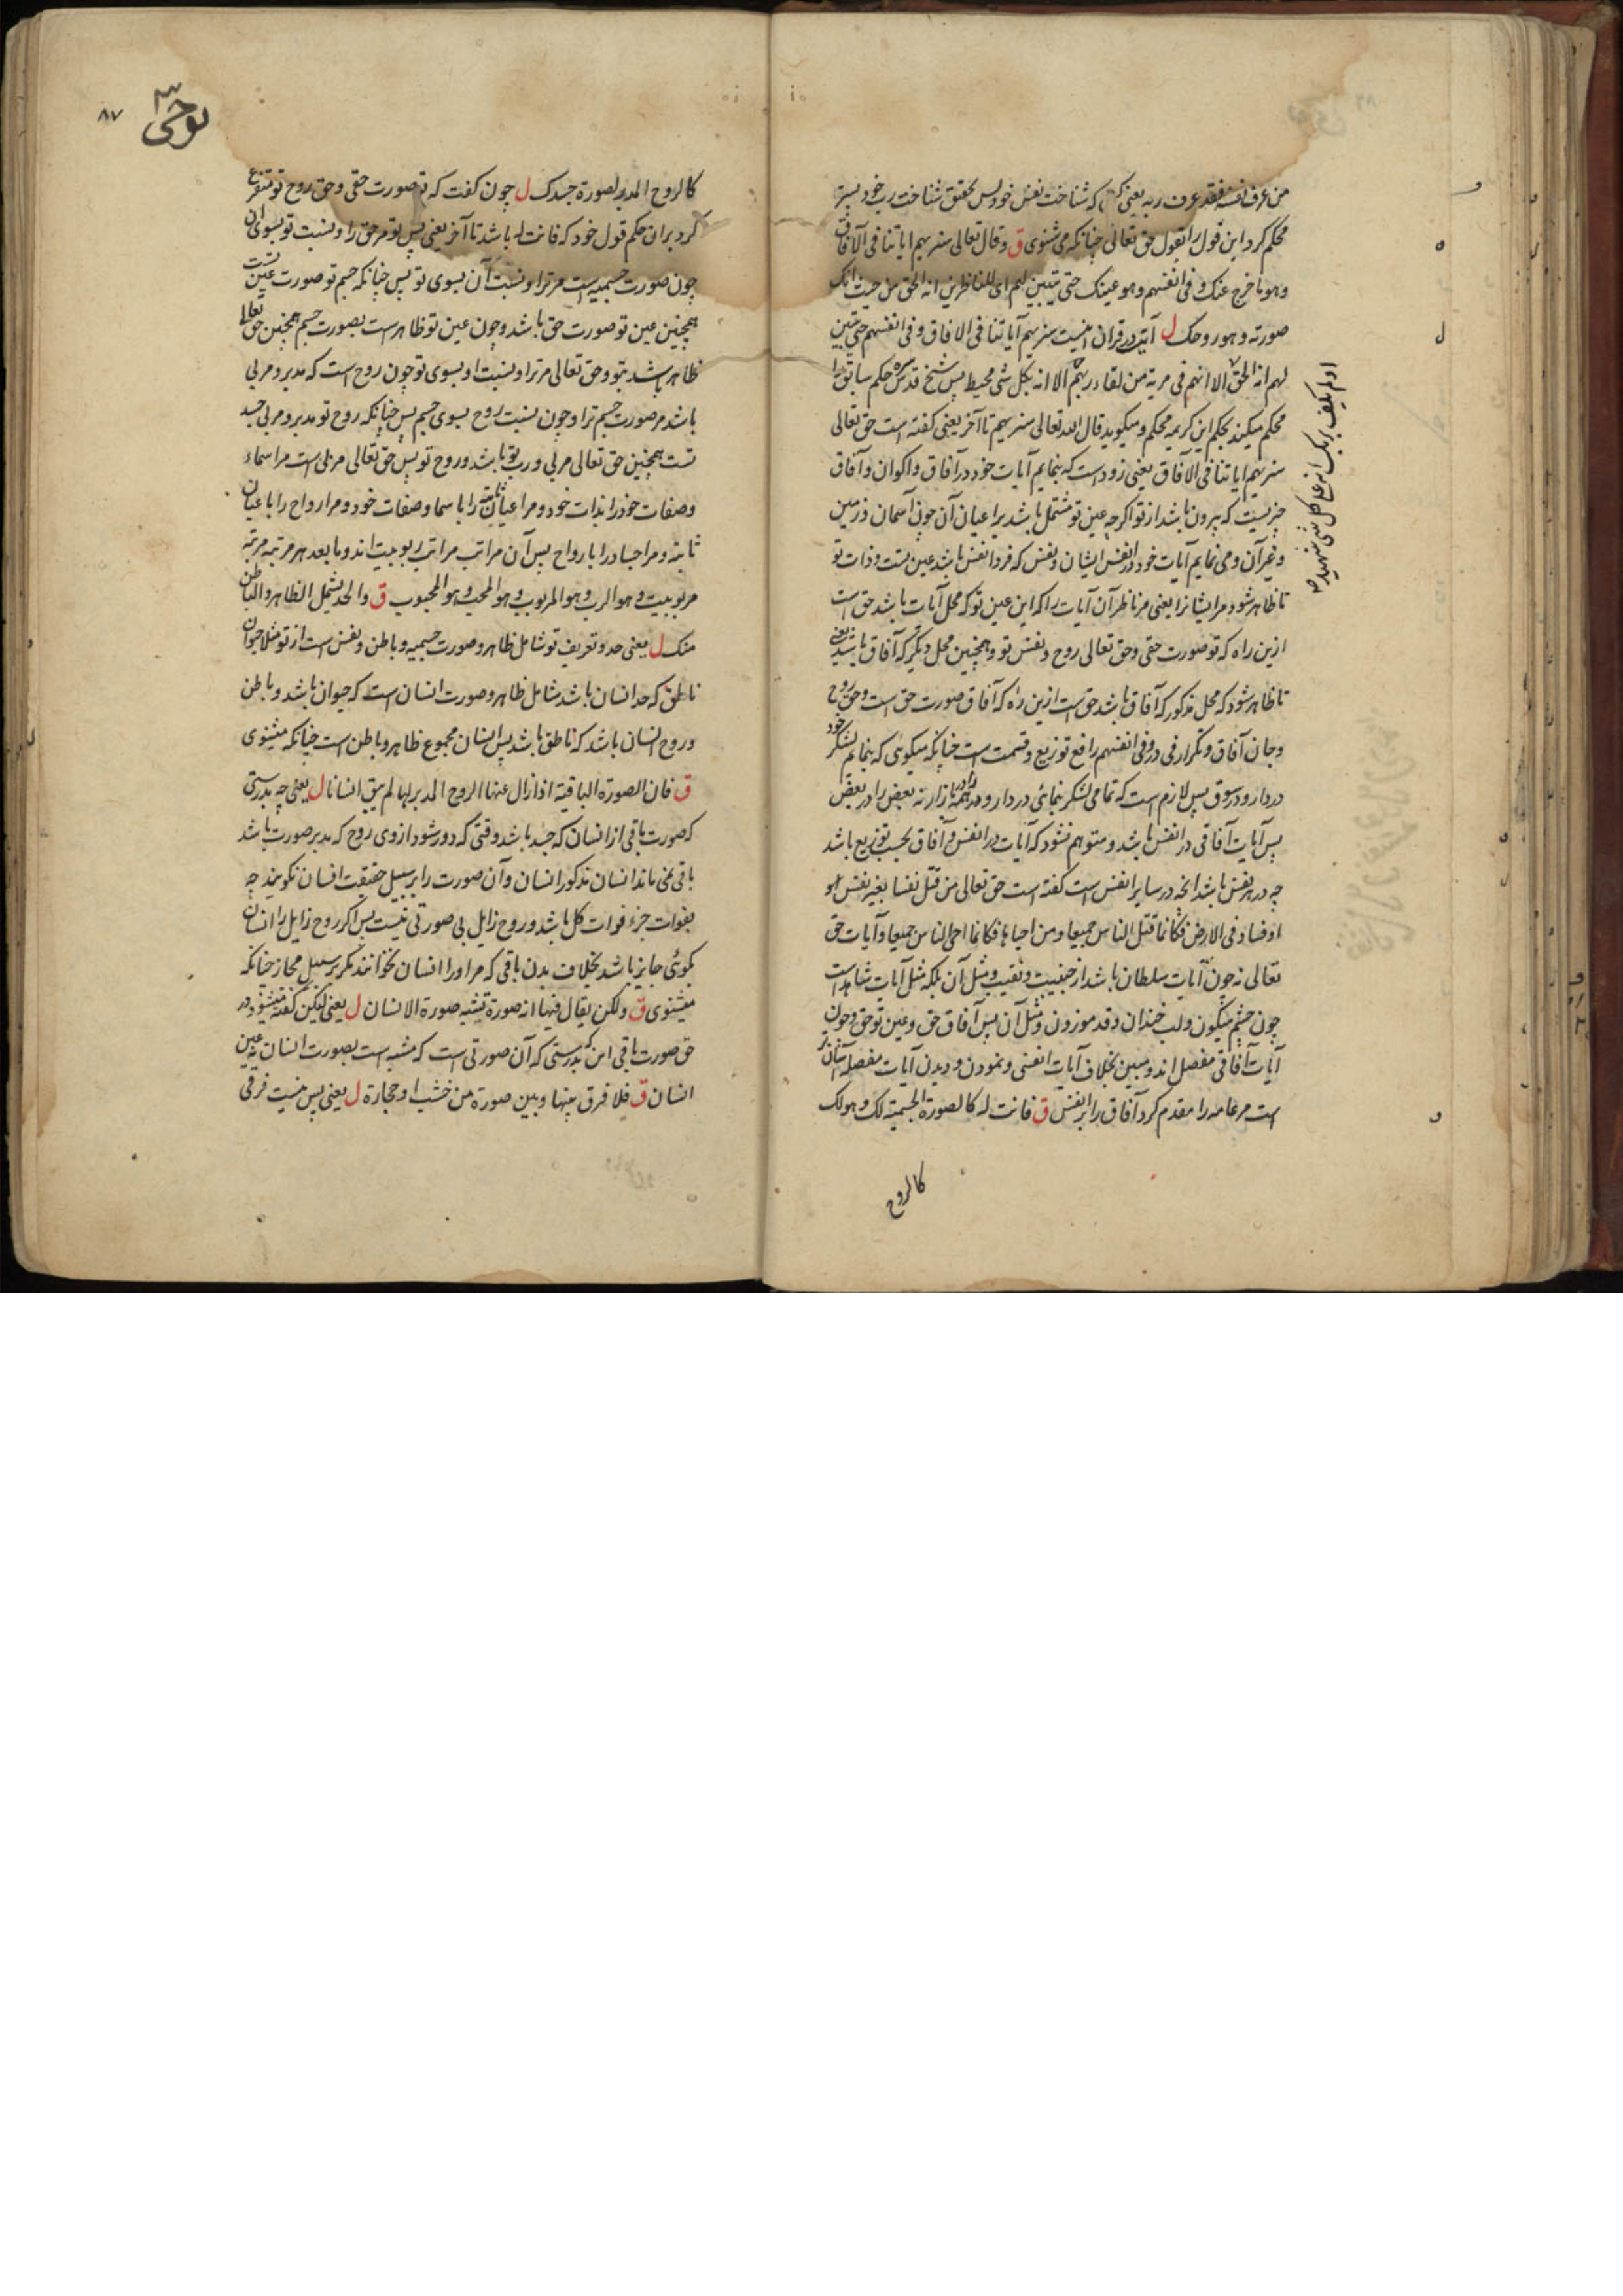 من عرف نفسه فقد عرف ربه یعنی کسی که شناخت نفس خود پس بحقیق شناخت رب خود پستر
محکم کرد این قول را بقول حق تعالی چنانکه می شنوی ق وقال تعالی سنریهم ایاتنا فی الآفاق
وهو ما خرج عنک وفی انفسهم وهو عینک حتی یتبین لهم ای للناظرین انه الحق من حیث انک
صورته وهو روحک ل آیت در قران اینست سنریهم آیاتنا فی الافاق وفی انفسهم حتی یتبین
لهم انه الحق الا انهم فی مریة من لقاء ربهم الا انه بکل شی محیط پس شیخ قدس سره حکم سابق را
محکم میکند بحکم این کریمه محکم و میگوید قال الله تعالی سنریهم تا آخر یعنی گفته است حق تعالی
سنریهم ایاتنا فی الآفاق یعنی زود است که بنمایم آیات خود در آفاق و اکوان و آفاق
چیزیست که بیرون باشد از تو اگرچه عین تو مشتمل باشد بر اعیان آن چون آسمان و زمین
و غیر آن و می نمایم آیات خود در انفس ایشان و نفس که فرد انفس باشد عین تست و ذات تو
تا ظاهر شود مر ایشانرا یعنی مر ناظر آن آیات را که این عین تو که محل آیات باشد حق است
ازین راه که تو صورت حقی و حق تعالی روح و نفس تو و همچنین محل دیگر که آفاق باشد یعنی
تا ظاهر شود که محل مذکور که آفاق باشد حق است ازین راه که آفاق صورت حق است و حق روح
و جان آفاق و تکرار فی در وفی انفسهم رافع توزیع و قسمت است چنانکه میگوئی که بنمایم لشکر خود
در دار و در سوق پس لازم است که تمامی لشکر بنمائی در دار و همه را در بازار نه بعض را در بعض
پس آیات آفاقی در انفس باشد و متوهم نشود که آیات در انفس و آفاق بحسب توزیع باشد
چه در هر نفس باشد انچه در سایر انفس است گفته است حق تعالی من قتل نفسا بغیر نفس
او فساد فی الارض فکانما قتل الناس جمیعا ومن احیاها فکانما احی الناس جمیعا و آیات حق
تعالی نه چون آیات سلطان باشد از جنیبت و نقیب و مثل آن بلکه مثل آیات شاهد است
چون چشم میگون و لب خندان و قد موزون و مثل آن پس آفاق حق و عین تو حق و چون
آیات آفاقی مفصل اند و مبین بخلاف آیات انفسی و نمودن و دیدن آیات مفصله آسانتر
است مر عامه را مقدم کرد آفاق را بر انفس ق فانت له کالصورة الجسمیة لک وهو لک
کالروح
او لم یکف بربک انه علی کل شی شهید
۸۷
کالروح المدبر لصورة جسدک ل چون گفت که تو صورت حقی و حق روح تو متفرع
کرد بران حکم قول خود که فانت له باشد تا آخر یعنی پس تو مر حق را و نسبت تو بسوی او
چون صورت جسمیه است مر ترا و نسبت آن بسوی تو پس چنانکه جسم تو صورت عین تست
همچنین عین تو صورت حق باشد و چون عین تو ظاهر است بصورت جسم همچنین حق تعالی
ظاهر باشد بتو و حق تعالی مر ترا و نسبت او بسوی تو چون روح است که مدبر و مربی
باشد مر صورت جسم ترا و چون نسبت روح بسوی جسم پس چنانکه روح تو مدبر و مربی جسد
تست همچنین حق تعالی مربی و رب تو باشد و روح تو پس حق تعالی مربی است مر اسماء
و صفات خود را بذات خود و مر اعیان ثابته را باسما و صفات خود و مر ارواح را باعیان
ثابته و مر اجساد را بارواح پس آن مراتب مراتب ربوبیت اند و ما بعد هر مرتبه مرتبه
مربوبیت وهو الرب وهو المربوب وهو المحب وهو المحبوب ق والحد یشمل الظاهر والباطن
منک ل یعنی حد و تعریف تو شامل ظاهر و صورت جسمیه و باطن و نفس است از تو مثلا حیوان
ناطق که حد انسان باشد شامل ظاهر و صورت انسان است که حیوان باشد و باطن
و روح انسان باشد که ناطق باشد پس انسان مجموع ظاهر و باطن است چنانکه میشنوی
ق فان الصورة الباقیة اذا زال عنها الروح المدبر لها لم یبق انسانا ل یعنی چه بدرستی
که صورت باقی از انسان که جسد باشد وقتی که دور شود از وی روح که مدبر صورت باشد
باقی نمی ماند انسان مذکور انسان و آن صورت را بر سبیل حقیقت انسان نگویند چه
بفوات جزء فوات کل باشد و روح زایل بی صورتی نیست پس اگر روح زایل را انسان
بگوئی جایز باشد بخلاف بدن باقی که مر او را انسان نخوانند مگر بر سبیل مجاز چنانکه
میشنوی ق ولکن یقال فیها انه صورة تشبه صورة الانسان ل یعنی لیکن گفته میشود در
حق صورت باقی این که بدرستی که آن صورتی است که مشبه است بصورت انسان نه عین
انسان ق فلا فرق بینها وبین صورة من خشب او حجارة ل یعنی پس نیست فرقی